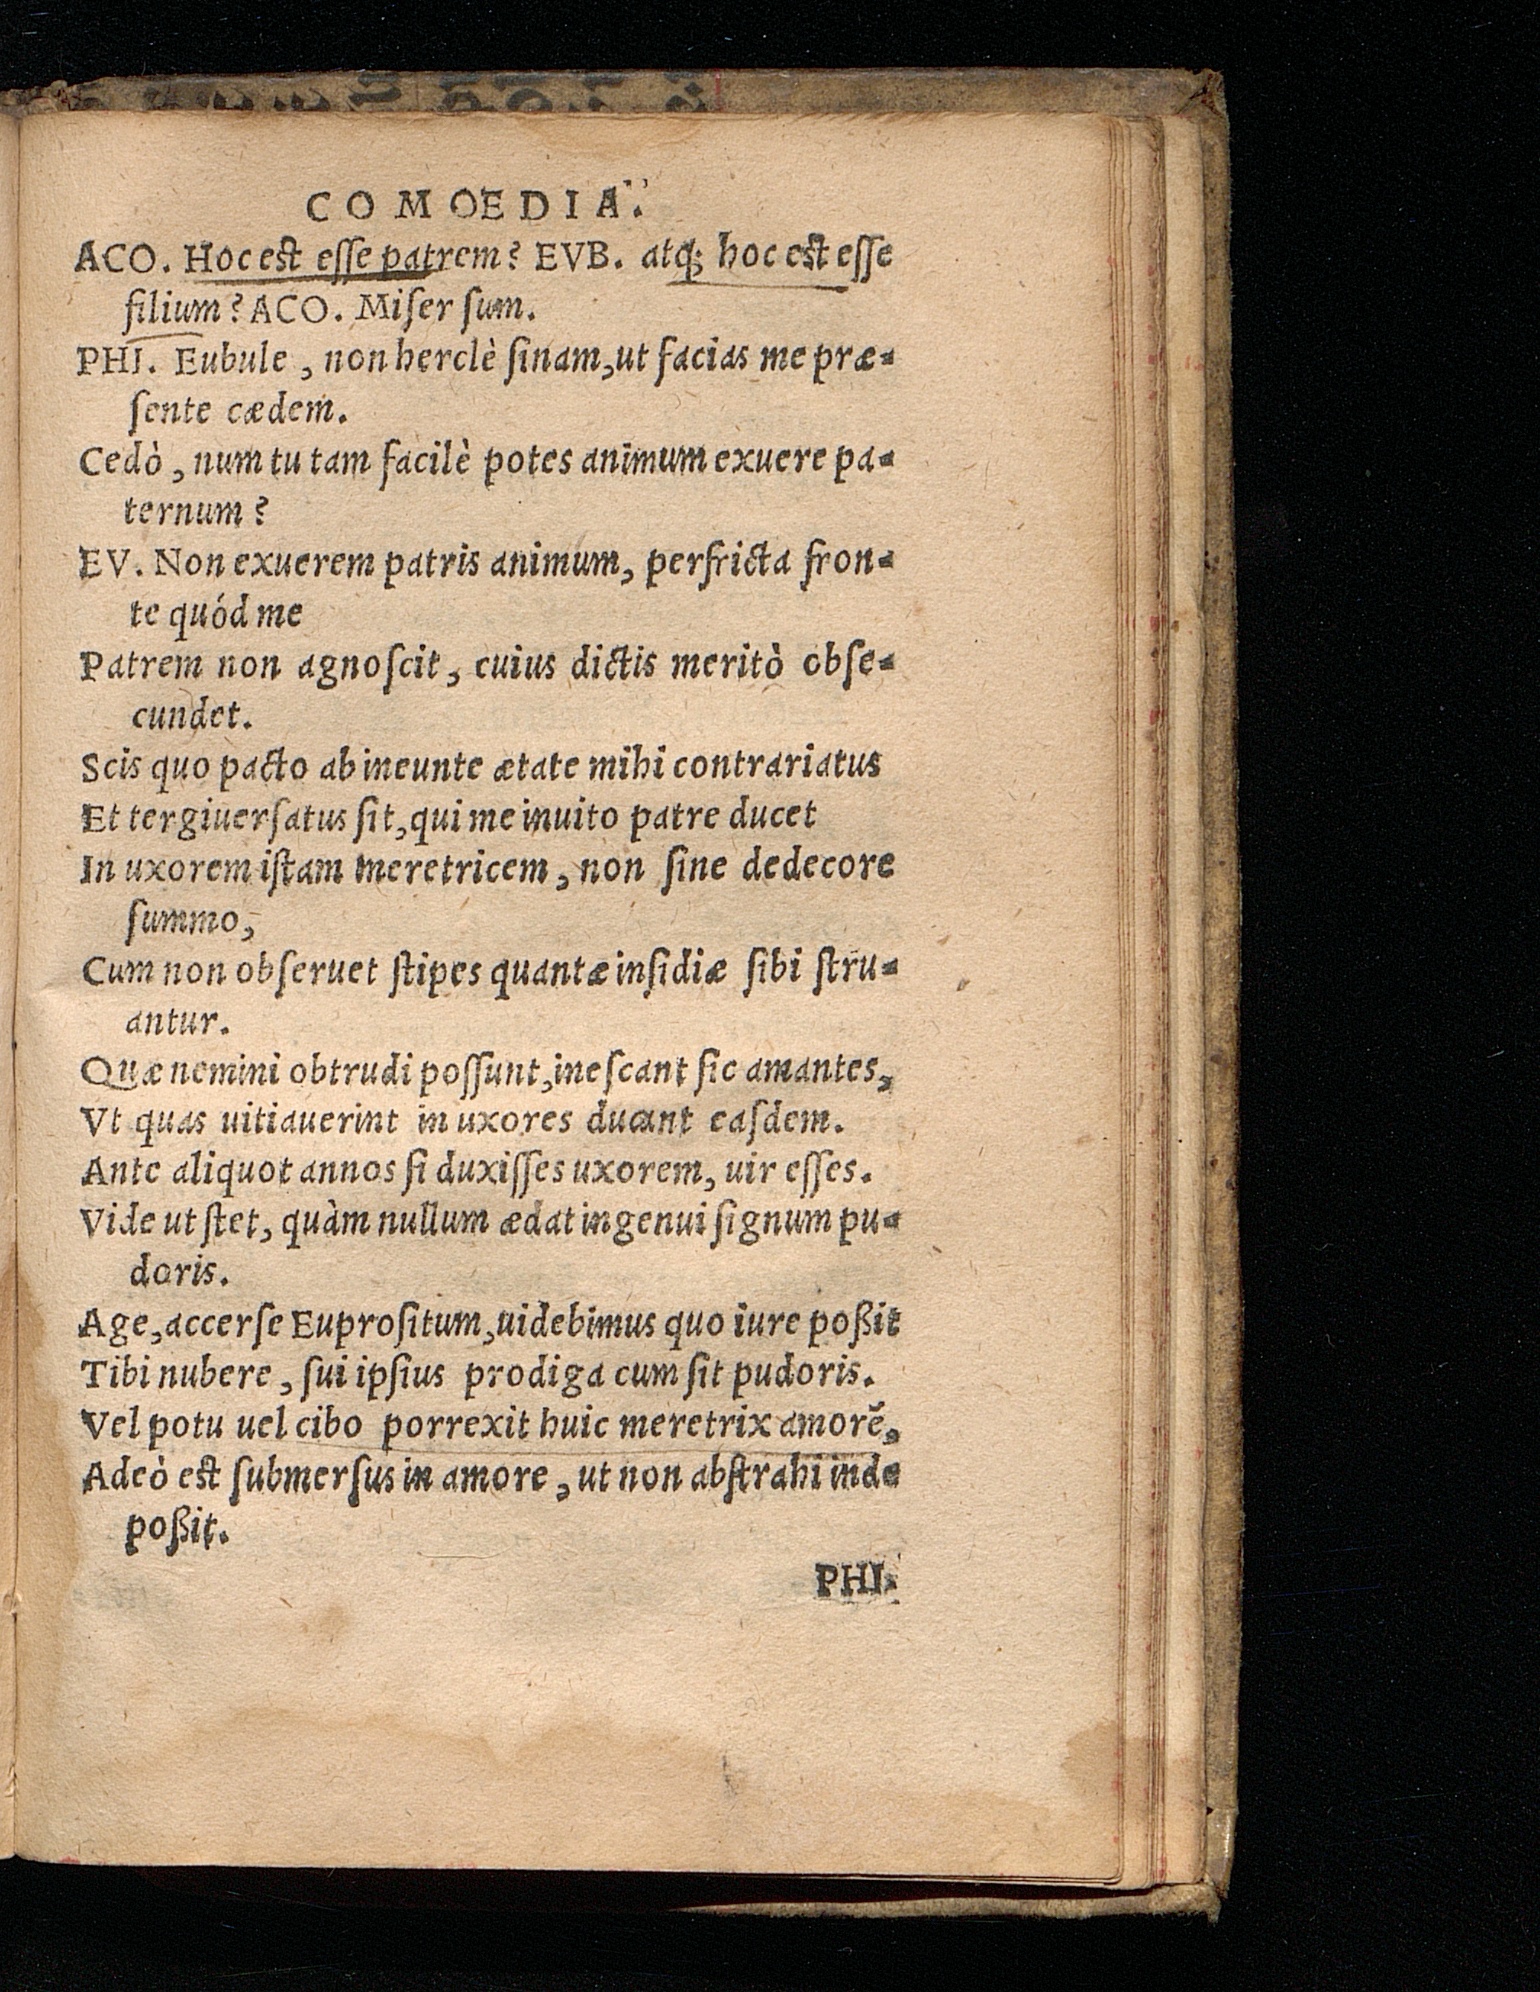 COMOEDIA.
ACO. Hoc est esse patrem? EVB. atq; hoc est esse
filium? ACO. Miser sum.
PHI. Eubule, non herclè sinam, ut facias me præ-
sente cædem.
Cedò, num tu tam facilè potes animum exuere pa-
ternum?
EV. Non exuerem patris animum, perfricta fron-
te quód me
Patrem non agnoscit, cuius dictis meritò obse-
cundet.
Scis quo pacto ab ineunte ætate mihi contrariatus
Et tergiuersatus sit, qui me inuito patre ducet
In uxorem istam meretricem, non sine dedecore
summo,
Cum non obseruet stipes quantæ insidiæ sibi stru-
antur.
Quæ nemini obtrudi possunt, inescant sic amantes,
Vt quas uitiauerint in uxores ducant easdem.
Ante aliquot annos si duxisses uxorem, uir esses.
Vide ut stet, quàm nullum ædat ingenui signum pu-
doris.
Age, accerse Euprositum, uidebimus quo iure poßit
Tibi nubere, sui ipsius prodiga cum sit pudoris.
Vel potu uel cibo porrexit huic meretrix amorē,
Adeò est submersus in amore, ut non abstrahi inde
poßit.
PHI.